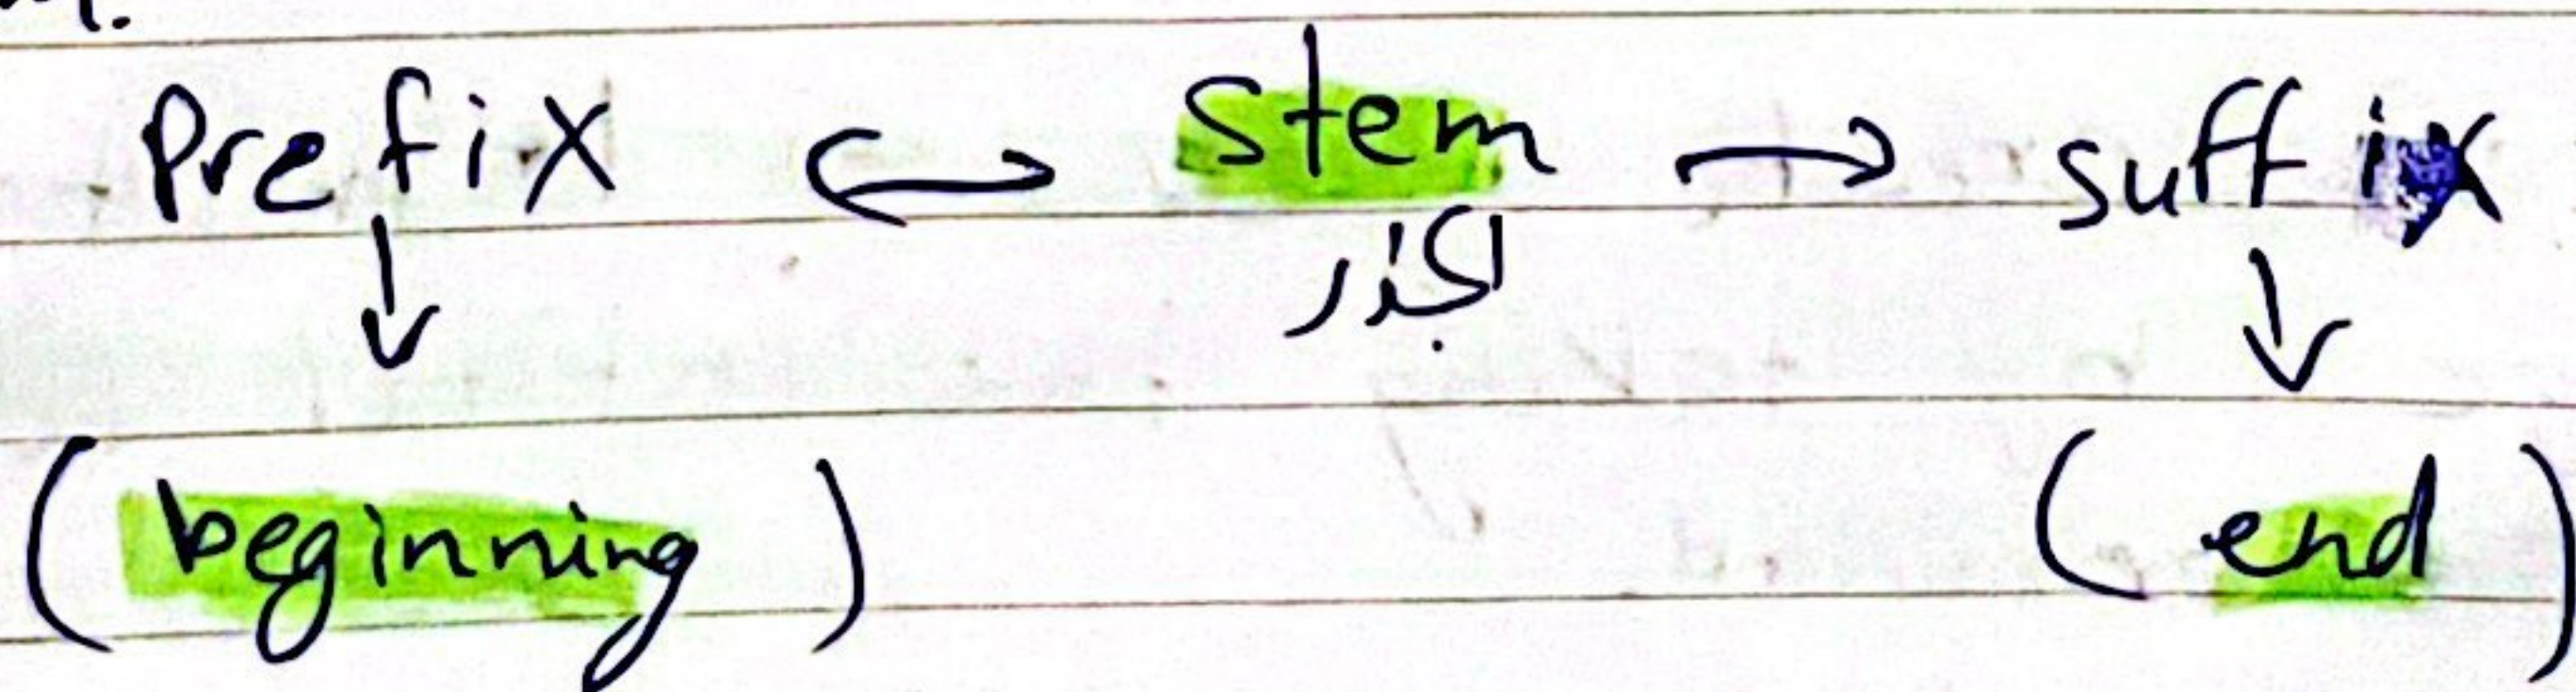 Prefix ↔ stem → suffix
الجذر
↓ ↓
(beginning) (end)